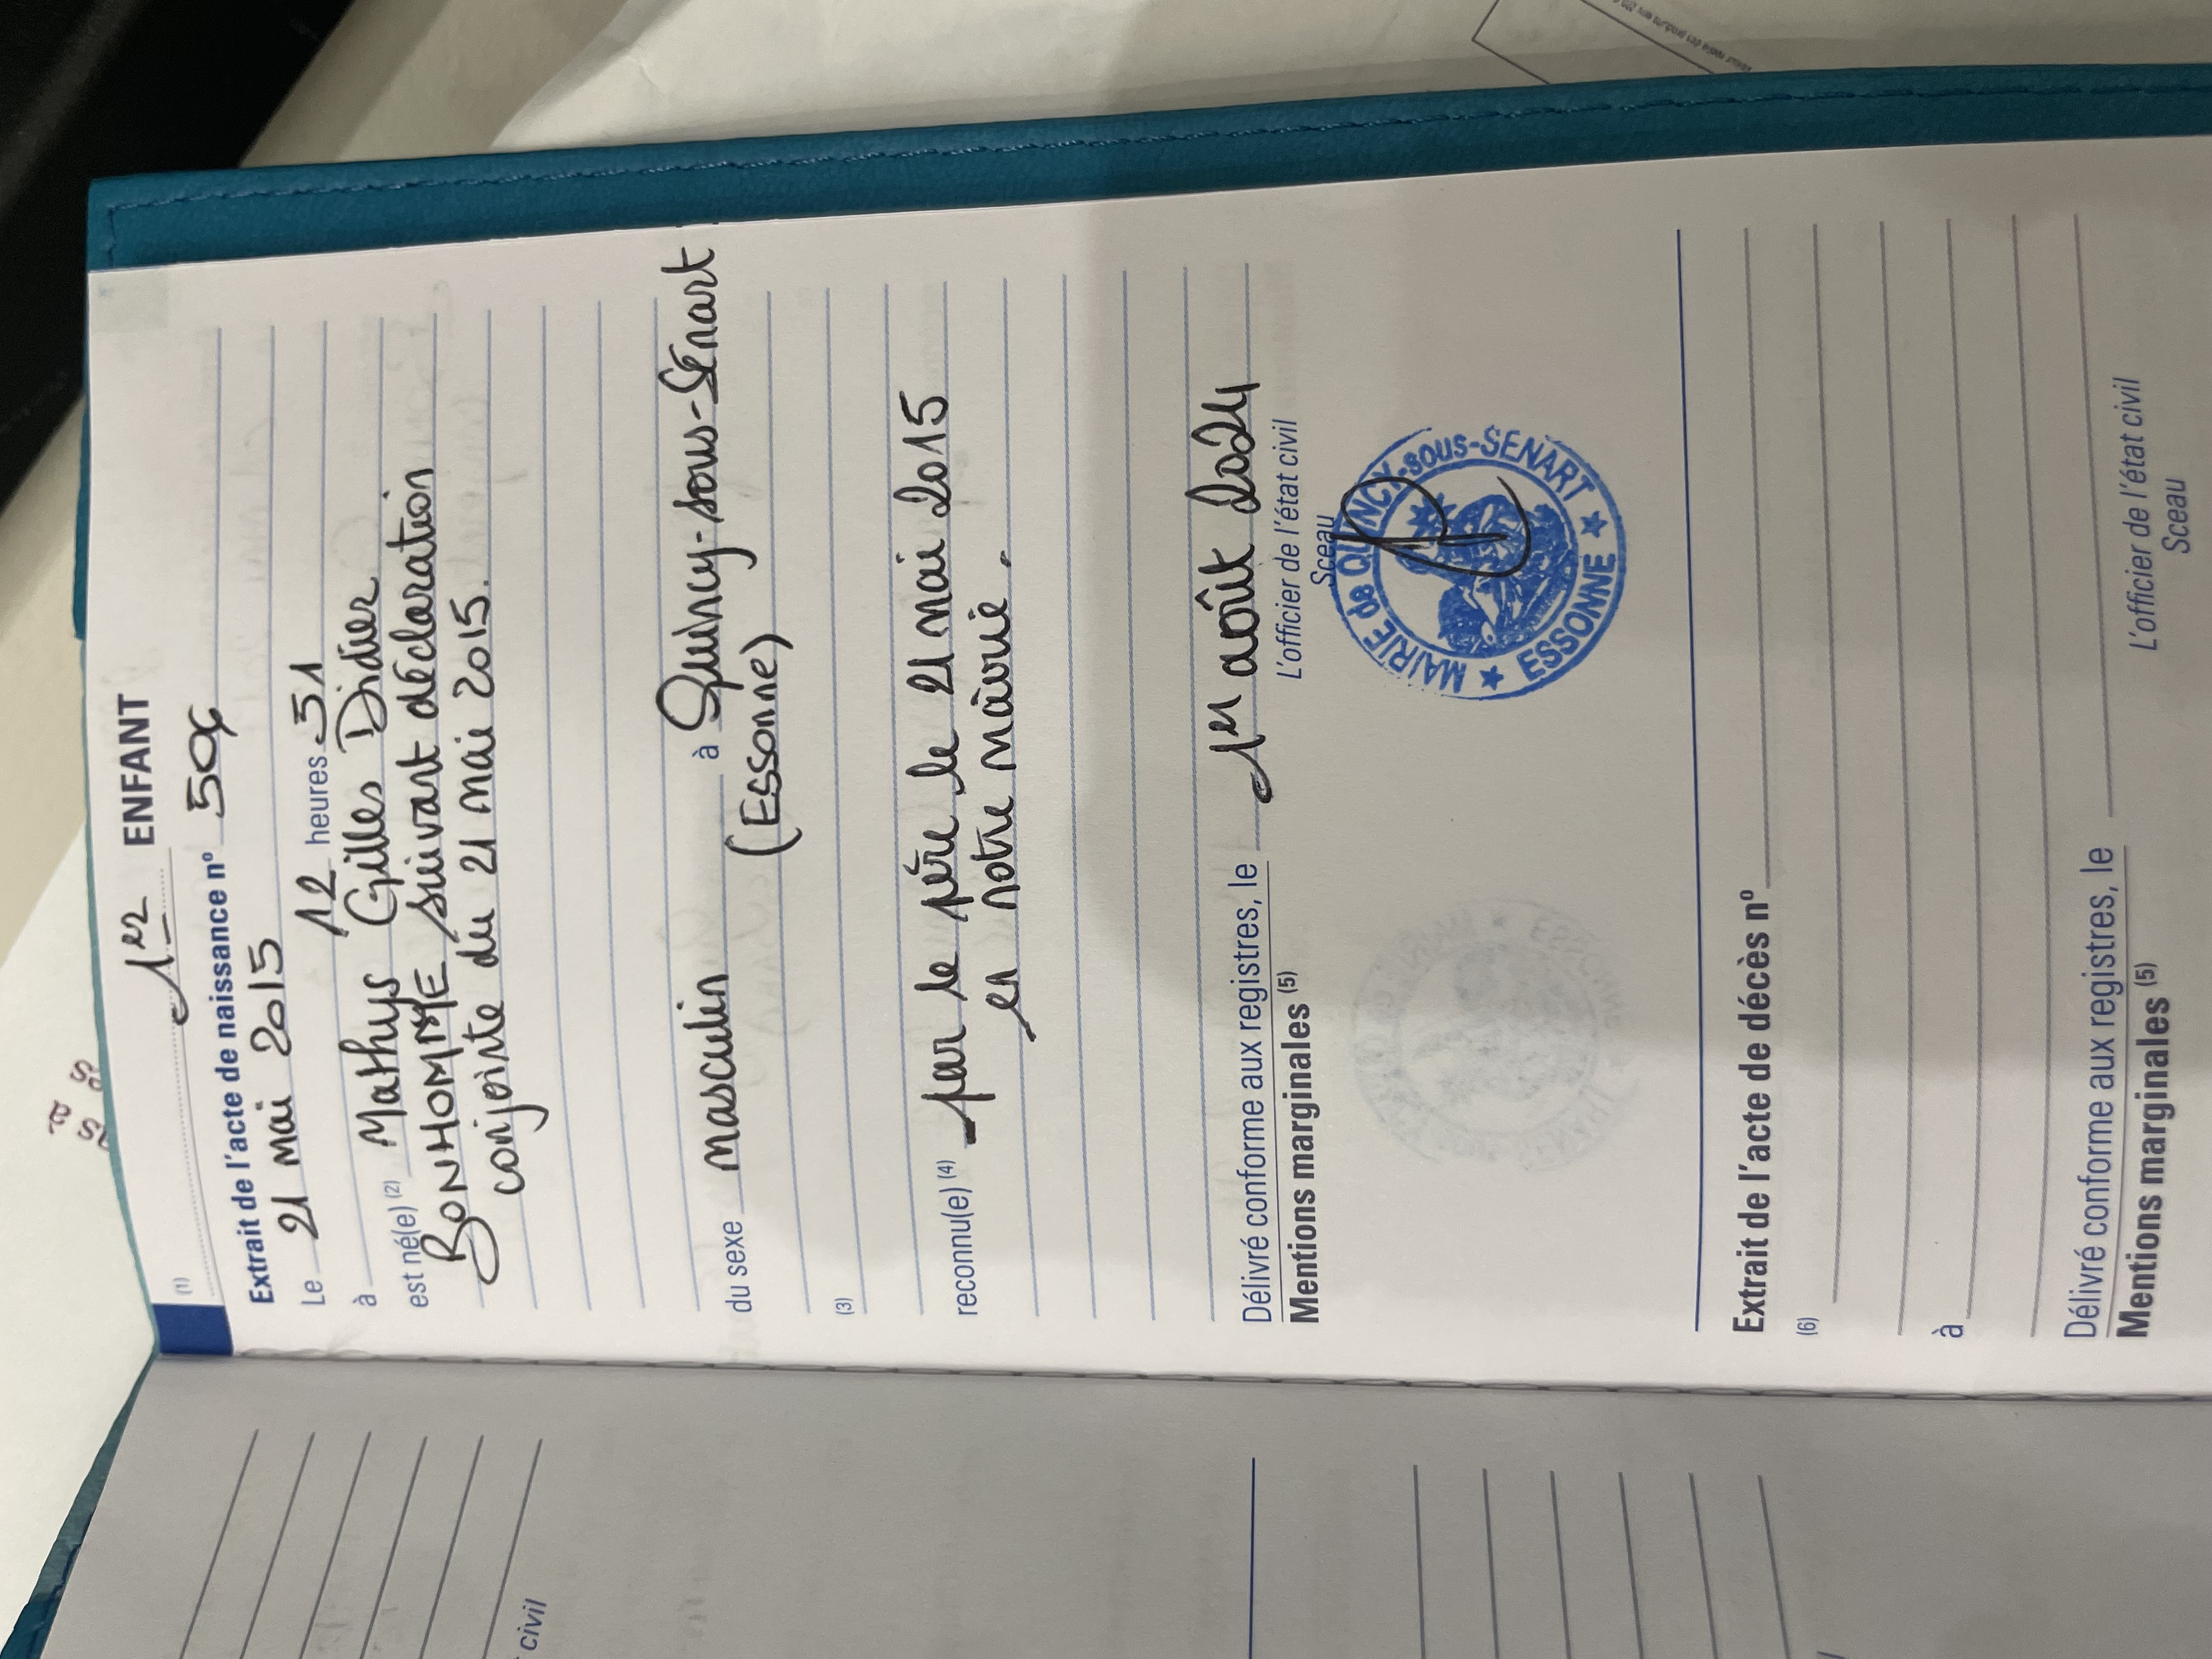 1er ENFANT
(1)
Extrait de l'acte de naissance nº 506
Le 21 mai 2015
à 12 heures 51
est né(e) (2) Mathys Gilles Didier
BONHOMME suivant déclaration
conjointe du 21 mai 2015.
du sexe masculin à Quincy-sous-Sénart
(Essonne)
(3)
reconnu(e) (4) par le père le 21 mai 2015
en notre mairie.
Délivré conforme aux registres, le 1er août 2024
Mentions marginales (5)
L'officier de l'état civil
Sceau
MAIRIE de QUINCY-sous-SENART
★ ESSONNE ★
Extrait de l'acte de décès nº
(6)
à
Délivré conforme aux registres, le
Mentions marginales (5)
L'officier de l'état civil
Sceau
civil